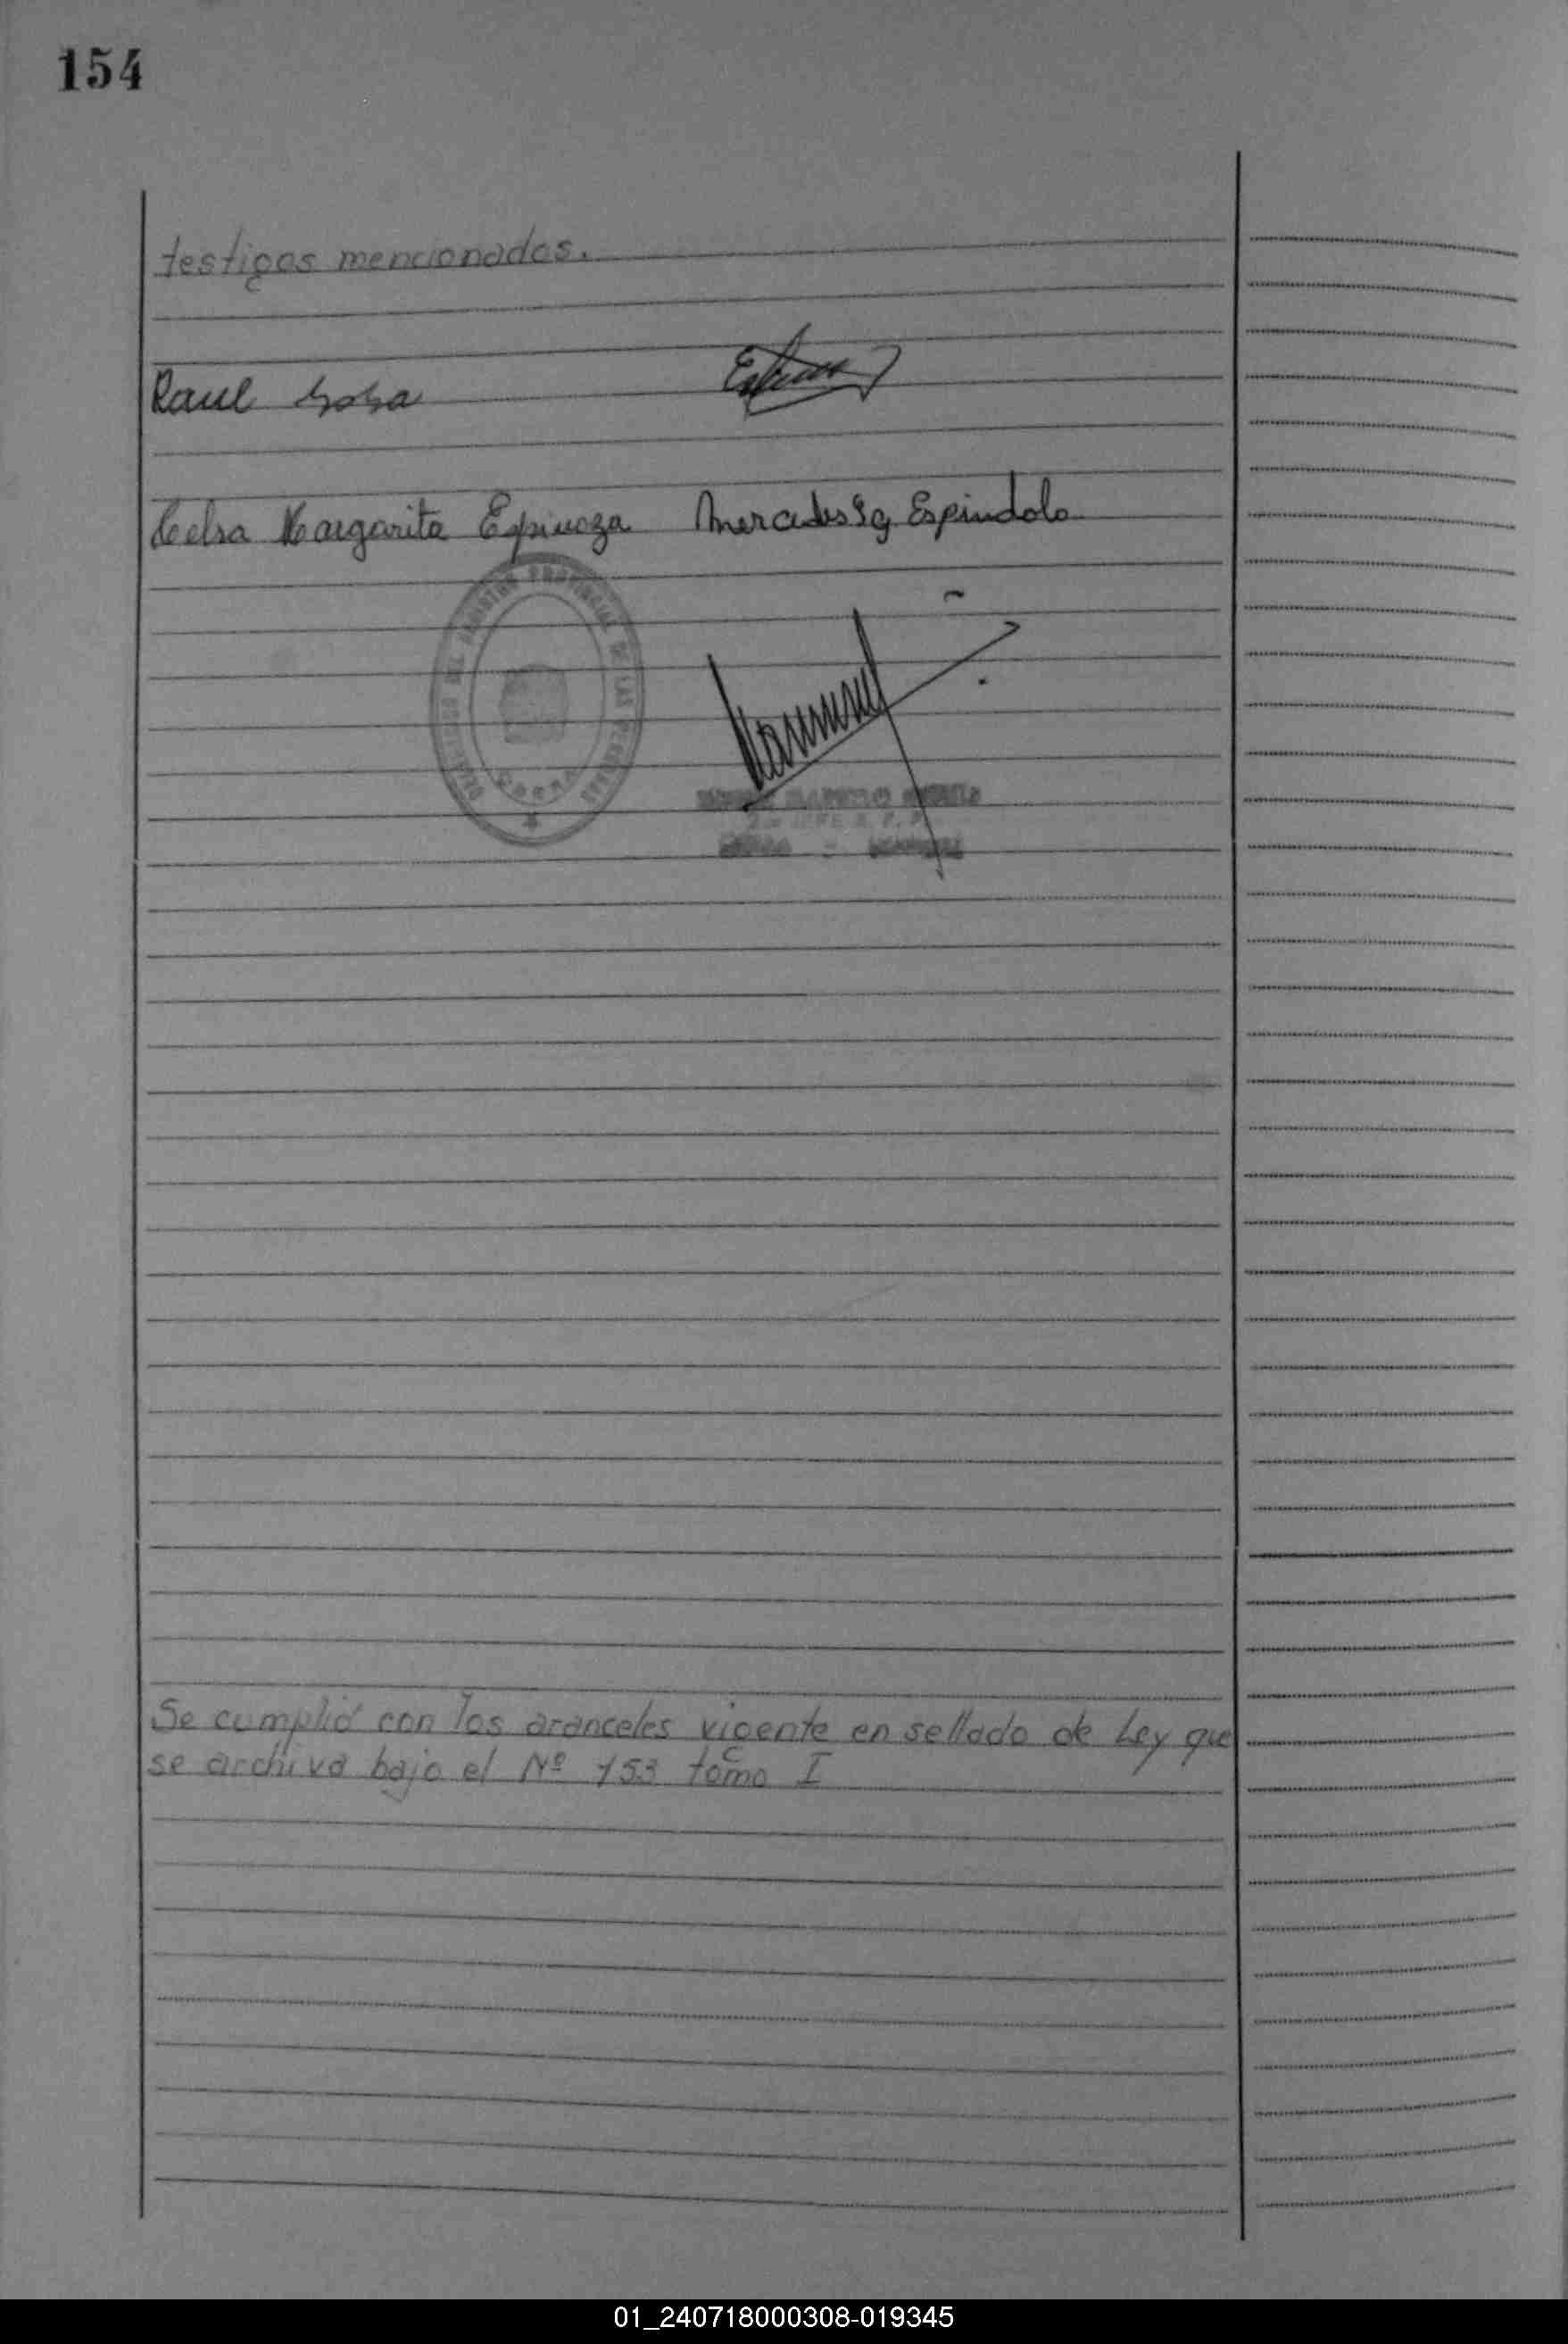 154
testigos mencionados.
Raul Sosa
Celsa Margarita Espinoza Mercedes Espindola
REGISTRO PROVINCIAL DE LAS PERSONAS
Se cumplió con los aranceles vigente en sellado de Ley que
se archiva bajo el Nº 153 tomo I
01_240718000308-019345